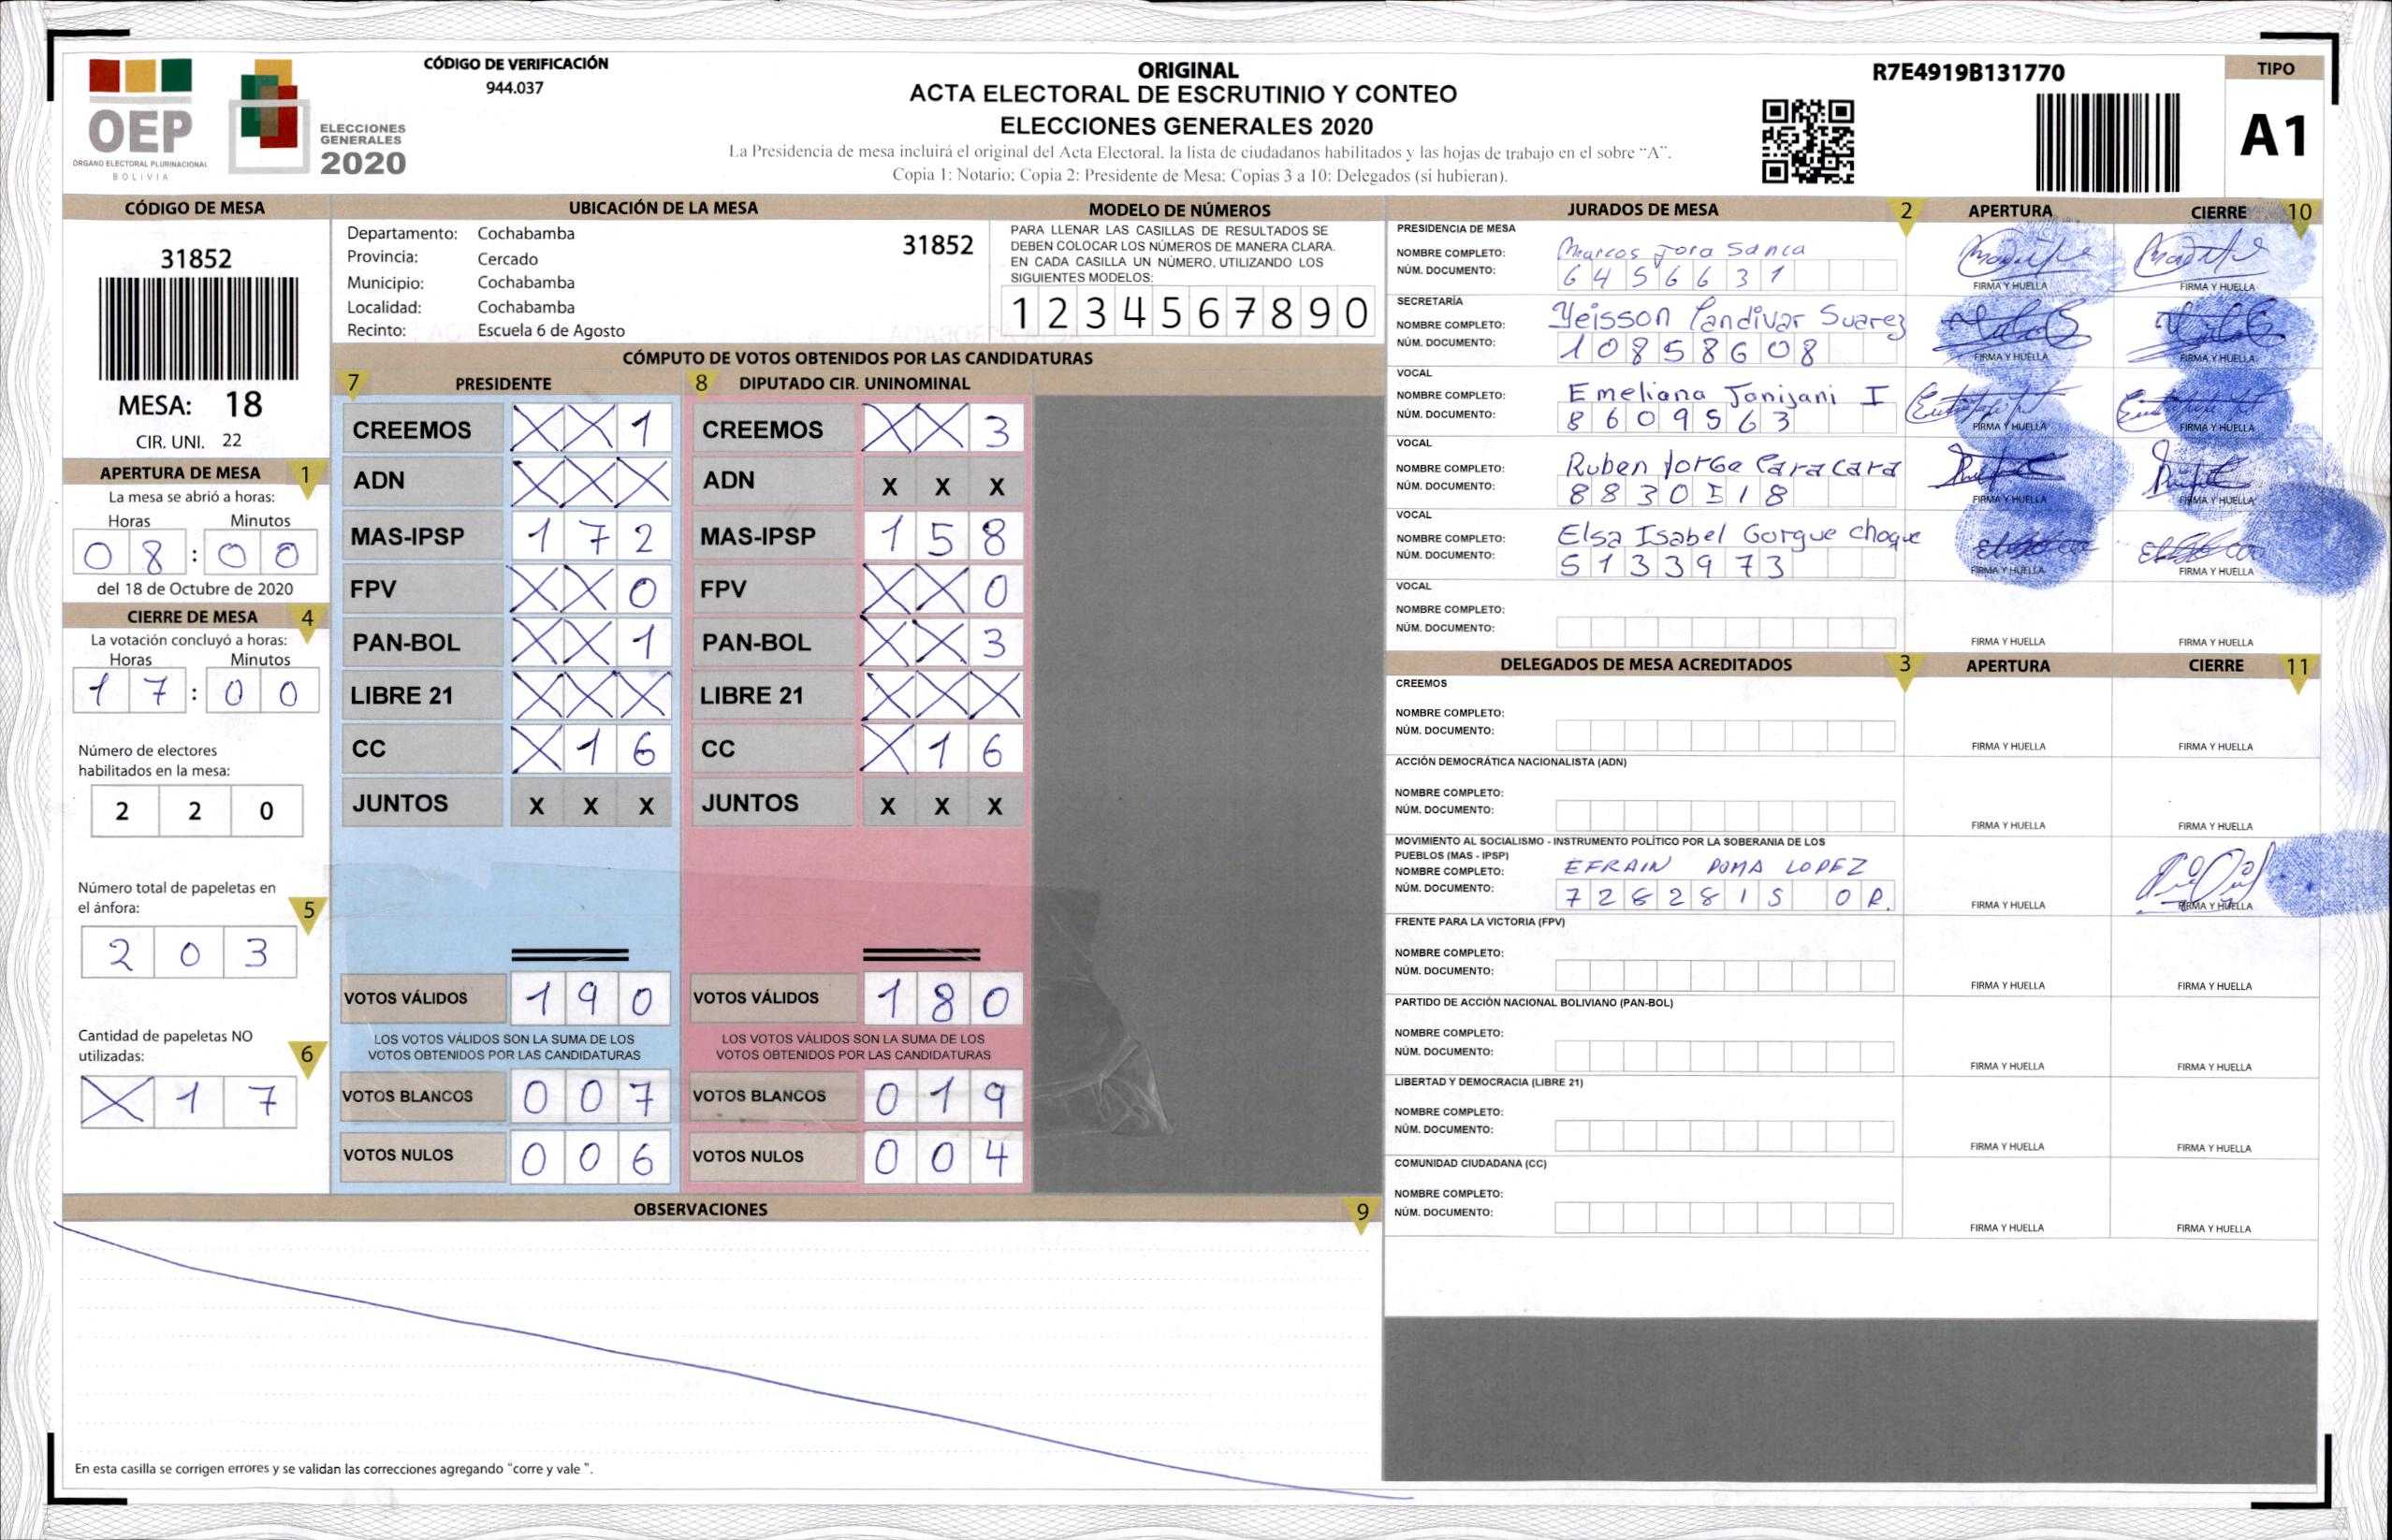 CÓDIGO DE VERIFICACIÓN
944.037
ORIGINAL
ACTA ELECTORAL DE ESCRUTINIO Y CONTEO
ELECCIONES GENERALES 2020
La Presidencia de mesa incluirá el original del Acta Electoral, la lista de ciudadanos habilitados y las hojas de trabajo en el sobre "A".
Copia 1: Notario; Copia 2: Presidente de Mesa; Copias 3 a 10: Delegados (si hubieran).
R7E4919B131770
TIPO
A1
OEP
ÓRGANO ELECTORAL PLURINACIONAL
BOLIVIA
ELECCIONES
GENERALES
2020
CÓDIGO DE MESA
31852
MESA: 18
CIR. UNI. 22
APERTURA DE MESA 1
La mesa se abrió a horas:
Horas Minutos
08:00
del 18 de Octubre de 2020
CIERRE DE MESA 4
La votación concluyó a horas:
Horas Minutos
17:00
Número de electores
habilitados en la mesa:
2 2 0
Número total de papeletas en
el ánfora: 5
2 0 3
Cantidad de papeletas NO
utilizadas: 6
X 1 7
UBICACIÓN DE LA MESA
Departamento: Cochabamba 31852
Provincia: Cercado
Municipio: Cochabamba
Localidad: Cochabamba
Recinto: Escuela 6 de Agosto
MODELO DE NÚMEROS
PARA LLENAR LAS CASILLAS DE RESULTADOS SE
DEBEN COLOCAR LOS NÚMEROS DE MANERA CLARA.
EN CADA CASILLA UN NÚMERO, UTILIZANDO LOS
SIGUIENTES MODELOS:
1 2 3 4 5 6 7 8 9 0
CÓMPUTO DE VOTOS OBTENIDOS POR LAS CANDIDATURAS
7 PRESIDENTE 8 DIPUTADO CIR. UNINOMINAL
CREEMOS X X 1 CREEMOS X X 3
ADN X X X ADN X X X
MAS-IPSP 1 7 2 MAS-IPSP 1 5 8
FPV X X 0 FPV X X 0
PAN-BOL X X 1 PAN-BOL X X 3
LIBRE 21 X X X LIBRE 21 X X X
CC X 1 6 CC X 1 6
JUNTOS X X X JUNTOS X X X
VOTOS VÁLIDOS 1 9 0 VOTOS VÁLIDOS 1 8 0
LOS VOTOS VÁLIDOS SON LA SUMA DE LOS LOS VOTOS VÁLIDOS SON LA SUMA DE LOS
VOTOS OBTENIDOS POR LAS CANDIDATURAS VOTOS OBTENIDOS POR LAS CANDIDATURAS
VOTOS BLANCOS 0 0 7 VOTOS BLANCOS 0 1 9
VOTOS NULOS 0 0 6 VOTOS NULOS 0 0 4
OBSERVACIONES 9
En esta casilla se corrigen errores y se validan las correcciones agregando "corre y vale ".
JURADOS DE MESA 2 APERTURA CIERRE 10
PRESIDENCIA DE MESA
NOMBRE COMPLETO: Marcos Jora Sanca
NÚM. DOCUMENTO: 6456631 FIRMA Y HUELLA FIRMA Y HUELLA
SECRETARÍA
NOMBRE COMPLETO: Yeisson Landivar Suarez
NÚM. DOCUMENTO: 10858608 FIRMA Y HUELLA FIRMA Y HUELLA
VOCAL
NOMBRE COMPLETO: Emeliana Jonijani I
NÚM. DOCUMENTO: 8609563 FIRMA Y HUELLA FIRMA Y HUELLA
VOCAL
NOMBRE COMPLETO: Ruben Jorge Cara Cara
NÚM. DOCUMENTO: 8830518 FIRMA Y HUELLA FIRMA Y HUELLA
VOCAL
NOMBRE COMPLETO: Elsa Isabel Gorgue choque
NÚM. DOCUMENTO: 5133973 FIRMA Y HUELLA FIRMA Y HUELLA
VOCAL
NOMBRE COMPLETO:
NÚM. DOCUMENTO: FIRMA Y HUELLA FIRMA Y HUELLA
DELEGADOS DE MESA ACREDITADOS 3 APERTURA CIERRE 11
CREEMOS
NOMBRE COMPLETO:
NÚM. DOCUMENTO: FIRMA Y HUELLA FIRMA Y HUELLA
ACCIÓN DEMOCRÁTICA NACIONALISTA (ADN)
NOMBRE COMPLETO:
NÚM. DOCUMENTO: FIRMA Y HUELLA FIRMA Y HUELLA
MOVIMIENTO AL SOCIALISMO - INSTRUMENTO POLÍTICO POR LA SOBERANIA DE LOS
PUEBLOS (MAS - IPSP)
NOMBRE COMPLETO: EFRAIN POMA LOPEZ
NÚM. DOCUMENTO: 7282815 OR. FIRMA Y HUELLA FIRMA Y HUELLA
FRENTE PARA LA VICTORIA (FPV)
NOMBRE COMPLETO:
NÚM. DOCUMENTO: FIRMA Y HUELLA FIRMA Y HUELLA
PARTIDO DE ACCIÓN NACIONAL BOLIVIANO (PAN-BOL)
NOMBRE COMPLETO:
NÚM. DOCUMENTO: FIRMA Y HUELLA FIRMA Y HUELLA
LIBERTAD Y DEMOCRACIA (LIBRE 21)
NOMBRE COMPLETO:
NÚM. DOCUMENTO: FIRMA Y HUELLA FIRMA Y HUELLA
COMUNIDAD CIUDADANA (CC)
NOMBRE COMPLETO:
NÚM. DOCUMENTO: FIRMA Y HUELLA FIRMA Y HUELLA